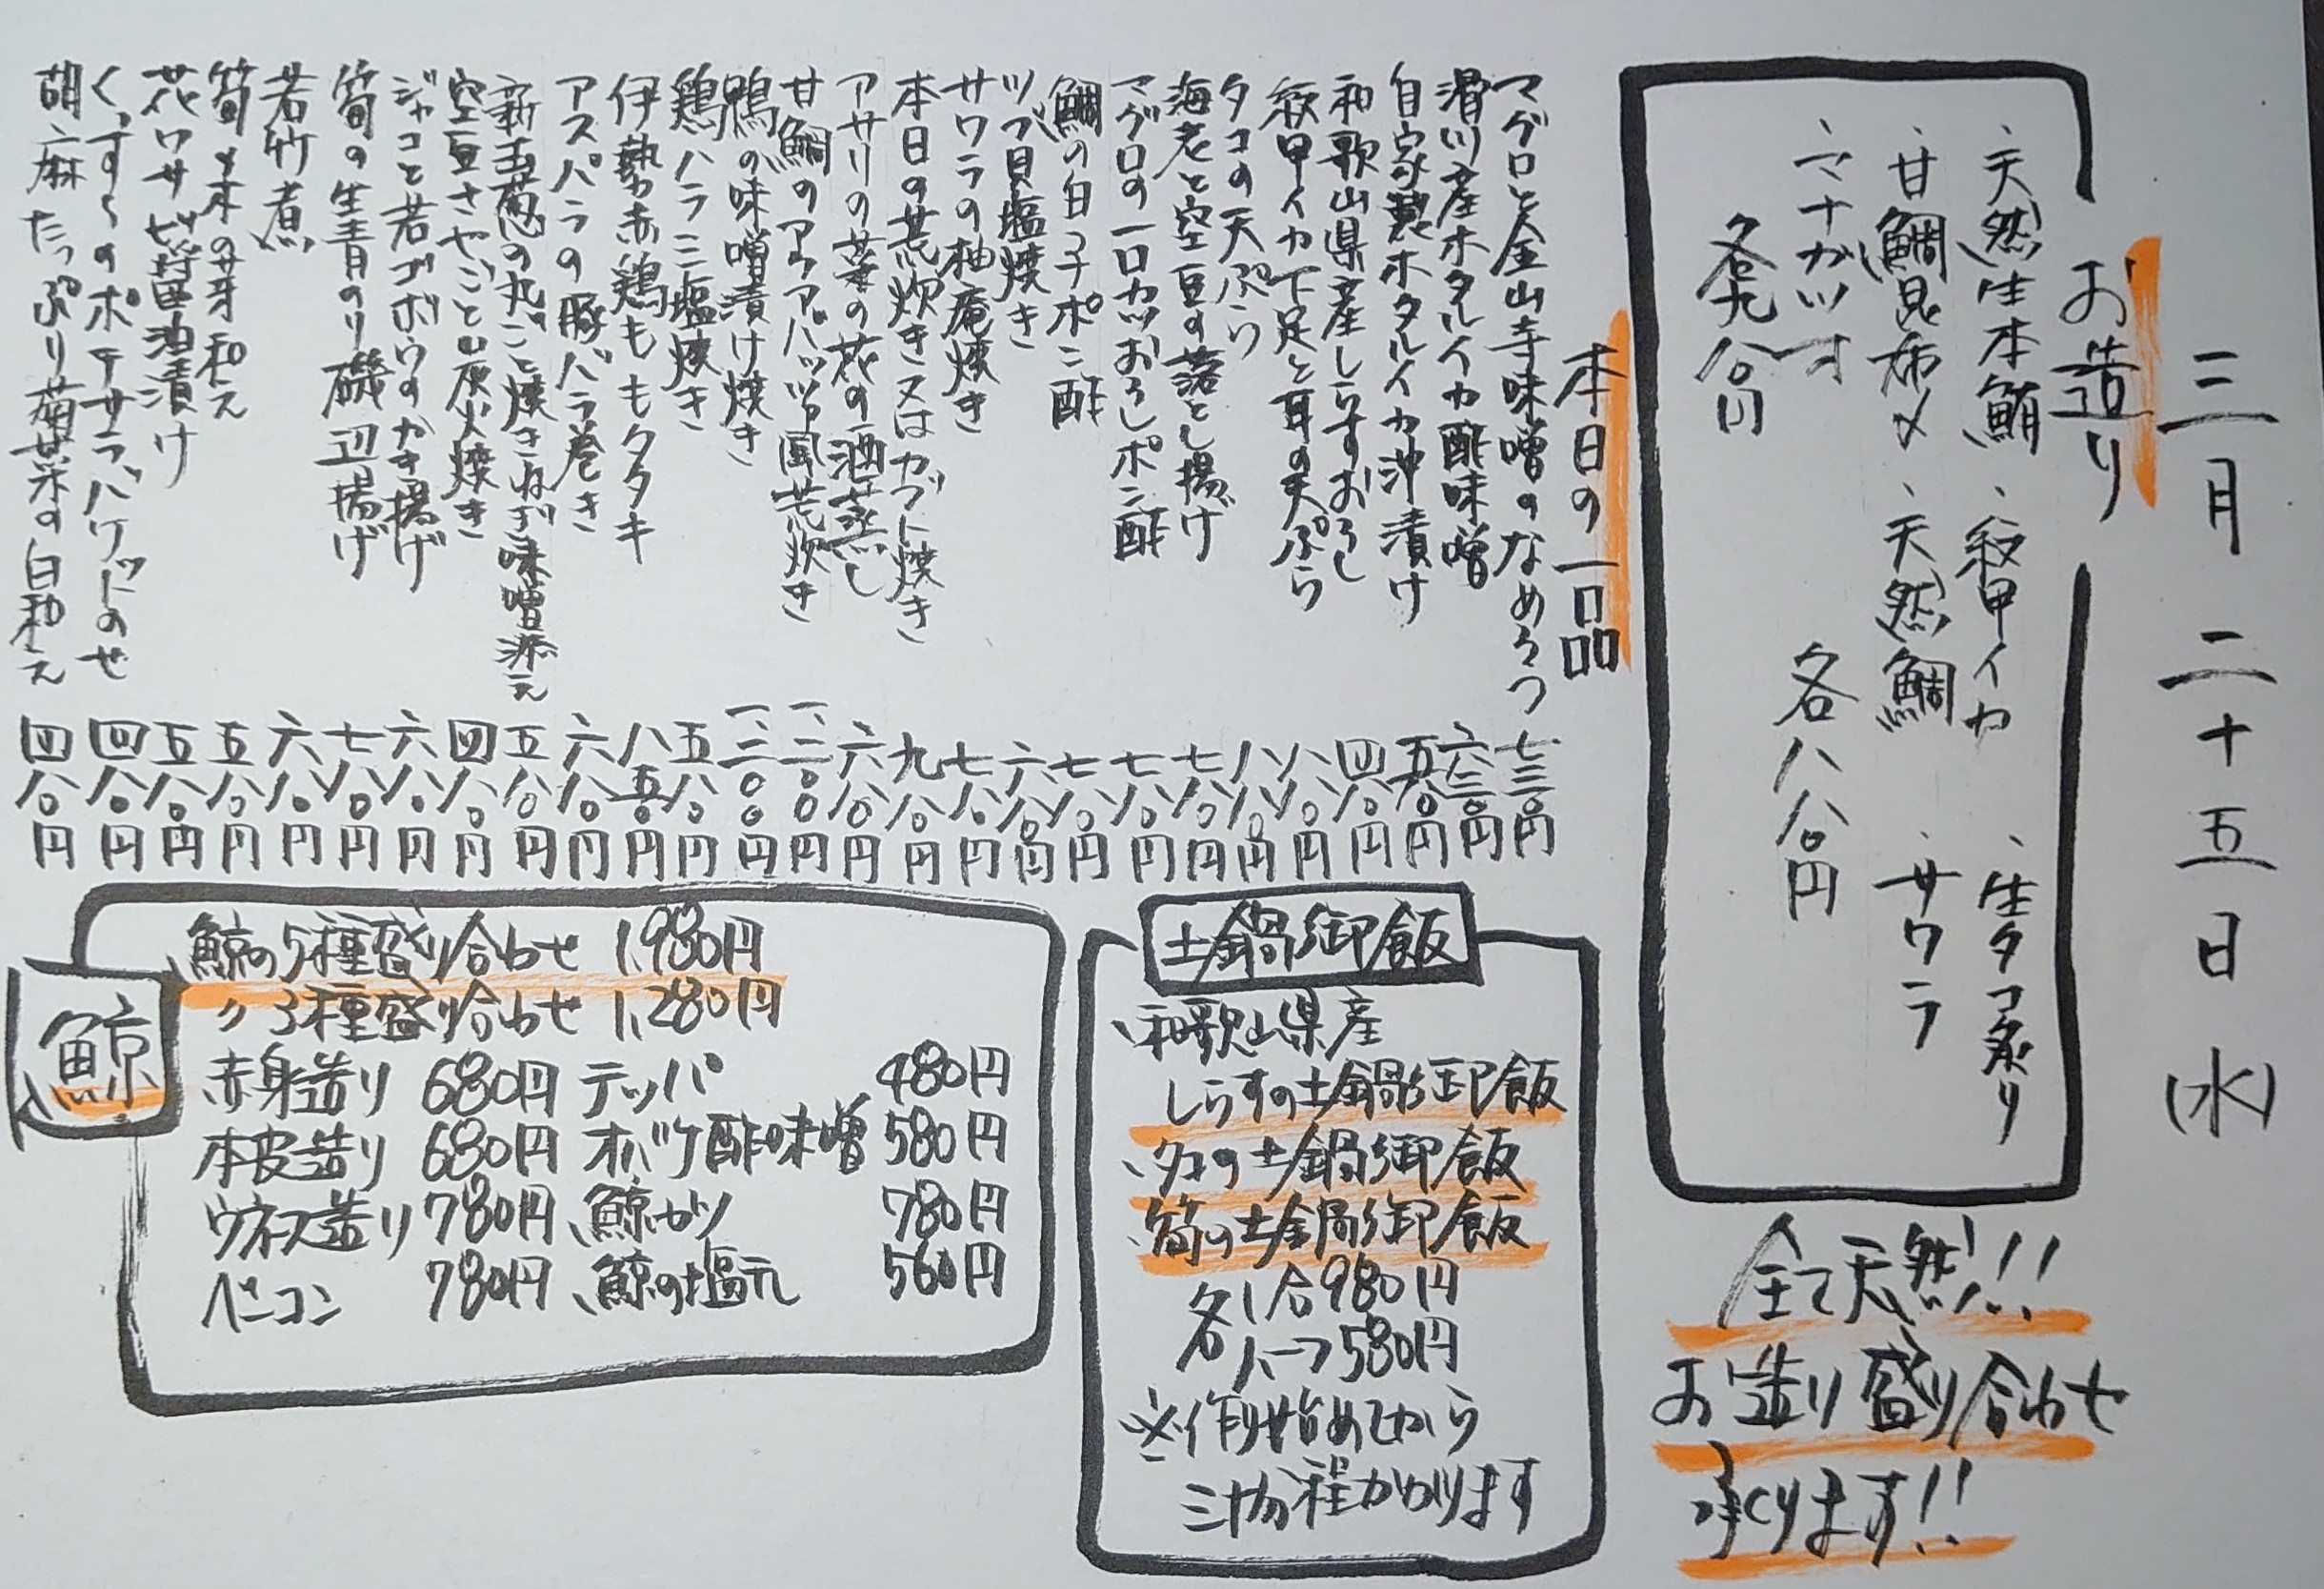 三月二十五日(水)
お造り
、天然生本鮪 、紋甲イカ 、生タコ炙り
、甘鯛昆布〆 、天然鯛 、サワラ
、マナガツオ 各八八〇円
各九八〇円
全て天然!!
お造り盛り合わせ
承ります!!
本日の一品
マグロと金山寺味噌のなめろう 七三〇円
滑川産ホタルイカ酢味噌 六三〇円
自家製ホタルイカ沖漬け 五八〇円
和歌山県産しらすおろし 四八〇円
紋甲イカ下足と耳の天ぷら 八八〇円
タコの天ぷら 八八〇円
海老と空豆の落とし揚げ 七八〇円
マグロの一口カツおろしポン酢 七八〇円
鯛の白子ポン酢 七八〇円
ツブ貝塩焼き 六八〇円
サワラの柚庵焼き 七八〇円
本日の荒炊き又はカブト焼き 九八〇円
アサリの菜の花の酒蒸し 六八〇円
甘鯛のアクアパッツァ風荒炊き 一、二〇〇円
鴨の味噌漬け焼き 一、二〇〇円
鶏ハラミ塩焼き 五八〇円
伊勢赤鶏ももタタキ 八五〇円
アスパラの豚バラ巻き 六八〇円
新玉葱の丸ごと焼きねぎ味噌添え 五八〇円
空豆さやごと炭火焼き 四八〇円
ジャコと若ゴボウのかき揚げ 六八〇円
筍の生青のり磯辺揚げ 七八〇円
若竹煮 六八〇円
筍の木の芽和え 五八〇円
花ワサビ醤油漬け 五八〇円
ポテサラバケットのせ 四八〇円
胡麻たっぷり菊菜の白和え 四八〇円
土鍋御飯
、和歌山県産
しらすの土鍋御飯
、タコの土鍋御飯
、筍の土鍋御飯
各1合980円
各ハーフ580円
※作り始めてから
三十分程かかります
鯨
、鯨の5種盛り合わせ 1,980円
〃 3種盛り合わせ 1,280円
赤身造り 680円 テッパ 480円
本皮造り 680円 オバケ酢味噌 580円
ウネス造り 780円 、鯨カツ 780円
ベーコン 780円 、鯨の塩元 560円